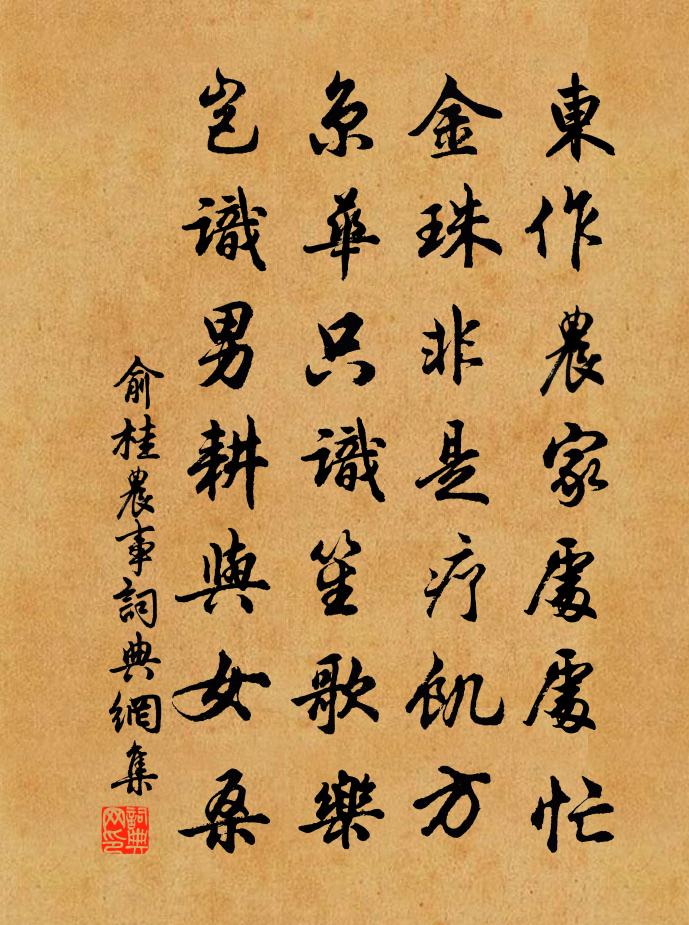 東作農家處處忙
金珠非是疗飢方
京華只識笙歌樂
岂識男耕與女桑
俞桂農事詞典網集
詞典网印